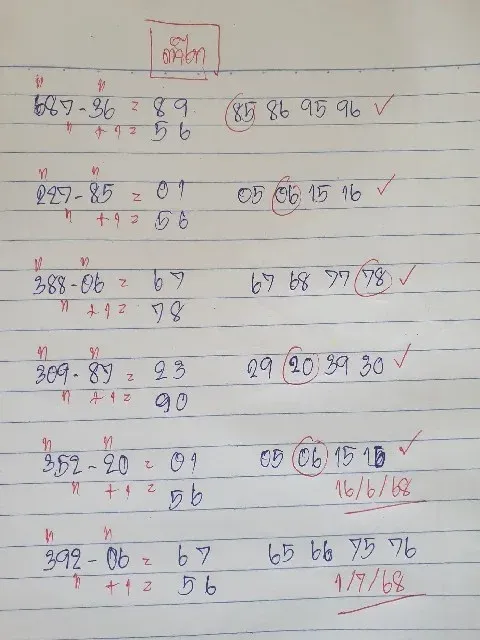 ห ห
687-36 = 89 85 86 95 96 ✓
ห +1 = 56
ห ห
227-85 = 01 05 06 15 16 ✓
ห +1 = 56
ห ห
388-06 = 67 67 68 77 78 ✓
ห +1 = 78
ห ห
309-87 = 23 29 20 39 30 ✓
ห +1 = 90
ห ห
352-20 = 01 05 06 15 16 ✓
ห +1 = 56 16/6/68
ห ห
392-06 = 67 65 66 75 76
ห +1 = 56 1/7/68